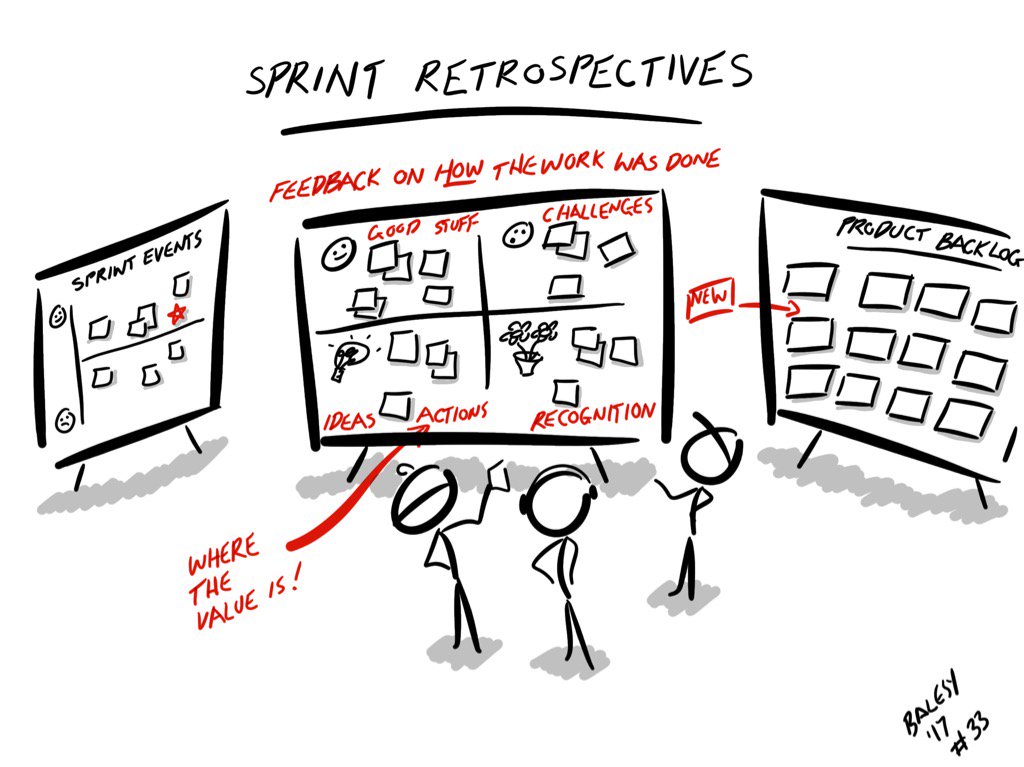 SPRINT RETROSPECTIVES
FEEDBACK ON HOW THE WORK WAS DONE
SPRINT EVENTS
GOOD STUFF
CHALLENGES
IDEAS ACTIONS
RECOGNITION
NEW
PRODUCT BACKLOG
WHERE
THE
VALUE IS!
BALESY
'17
#33